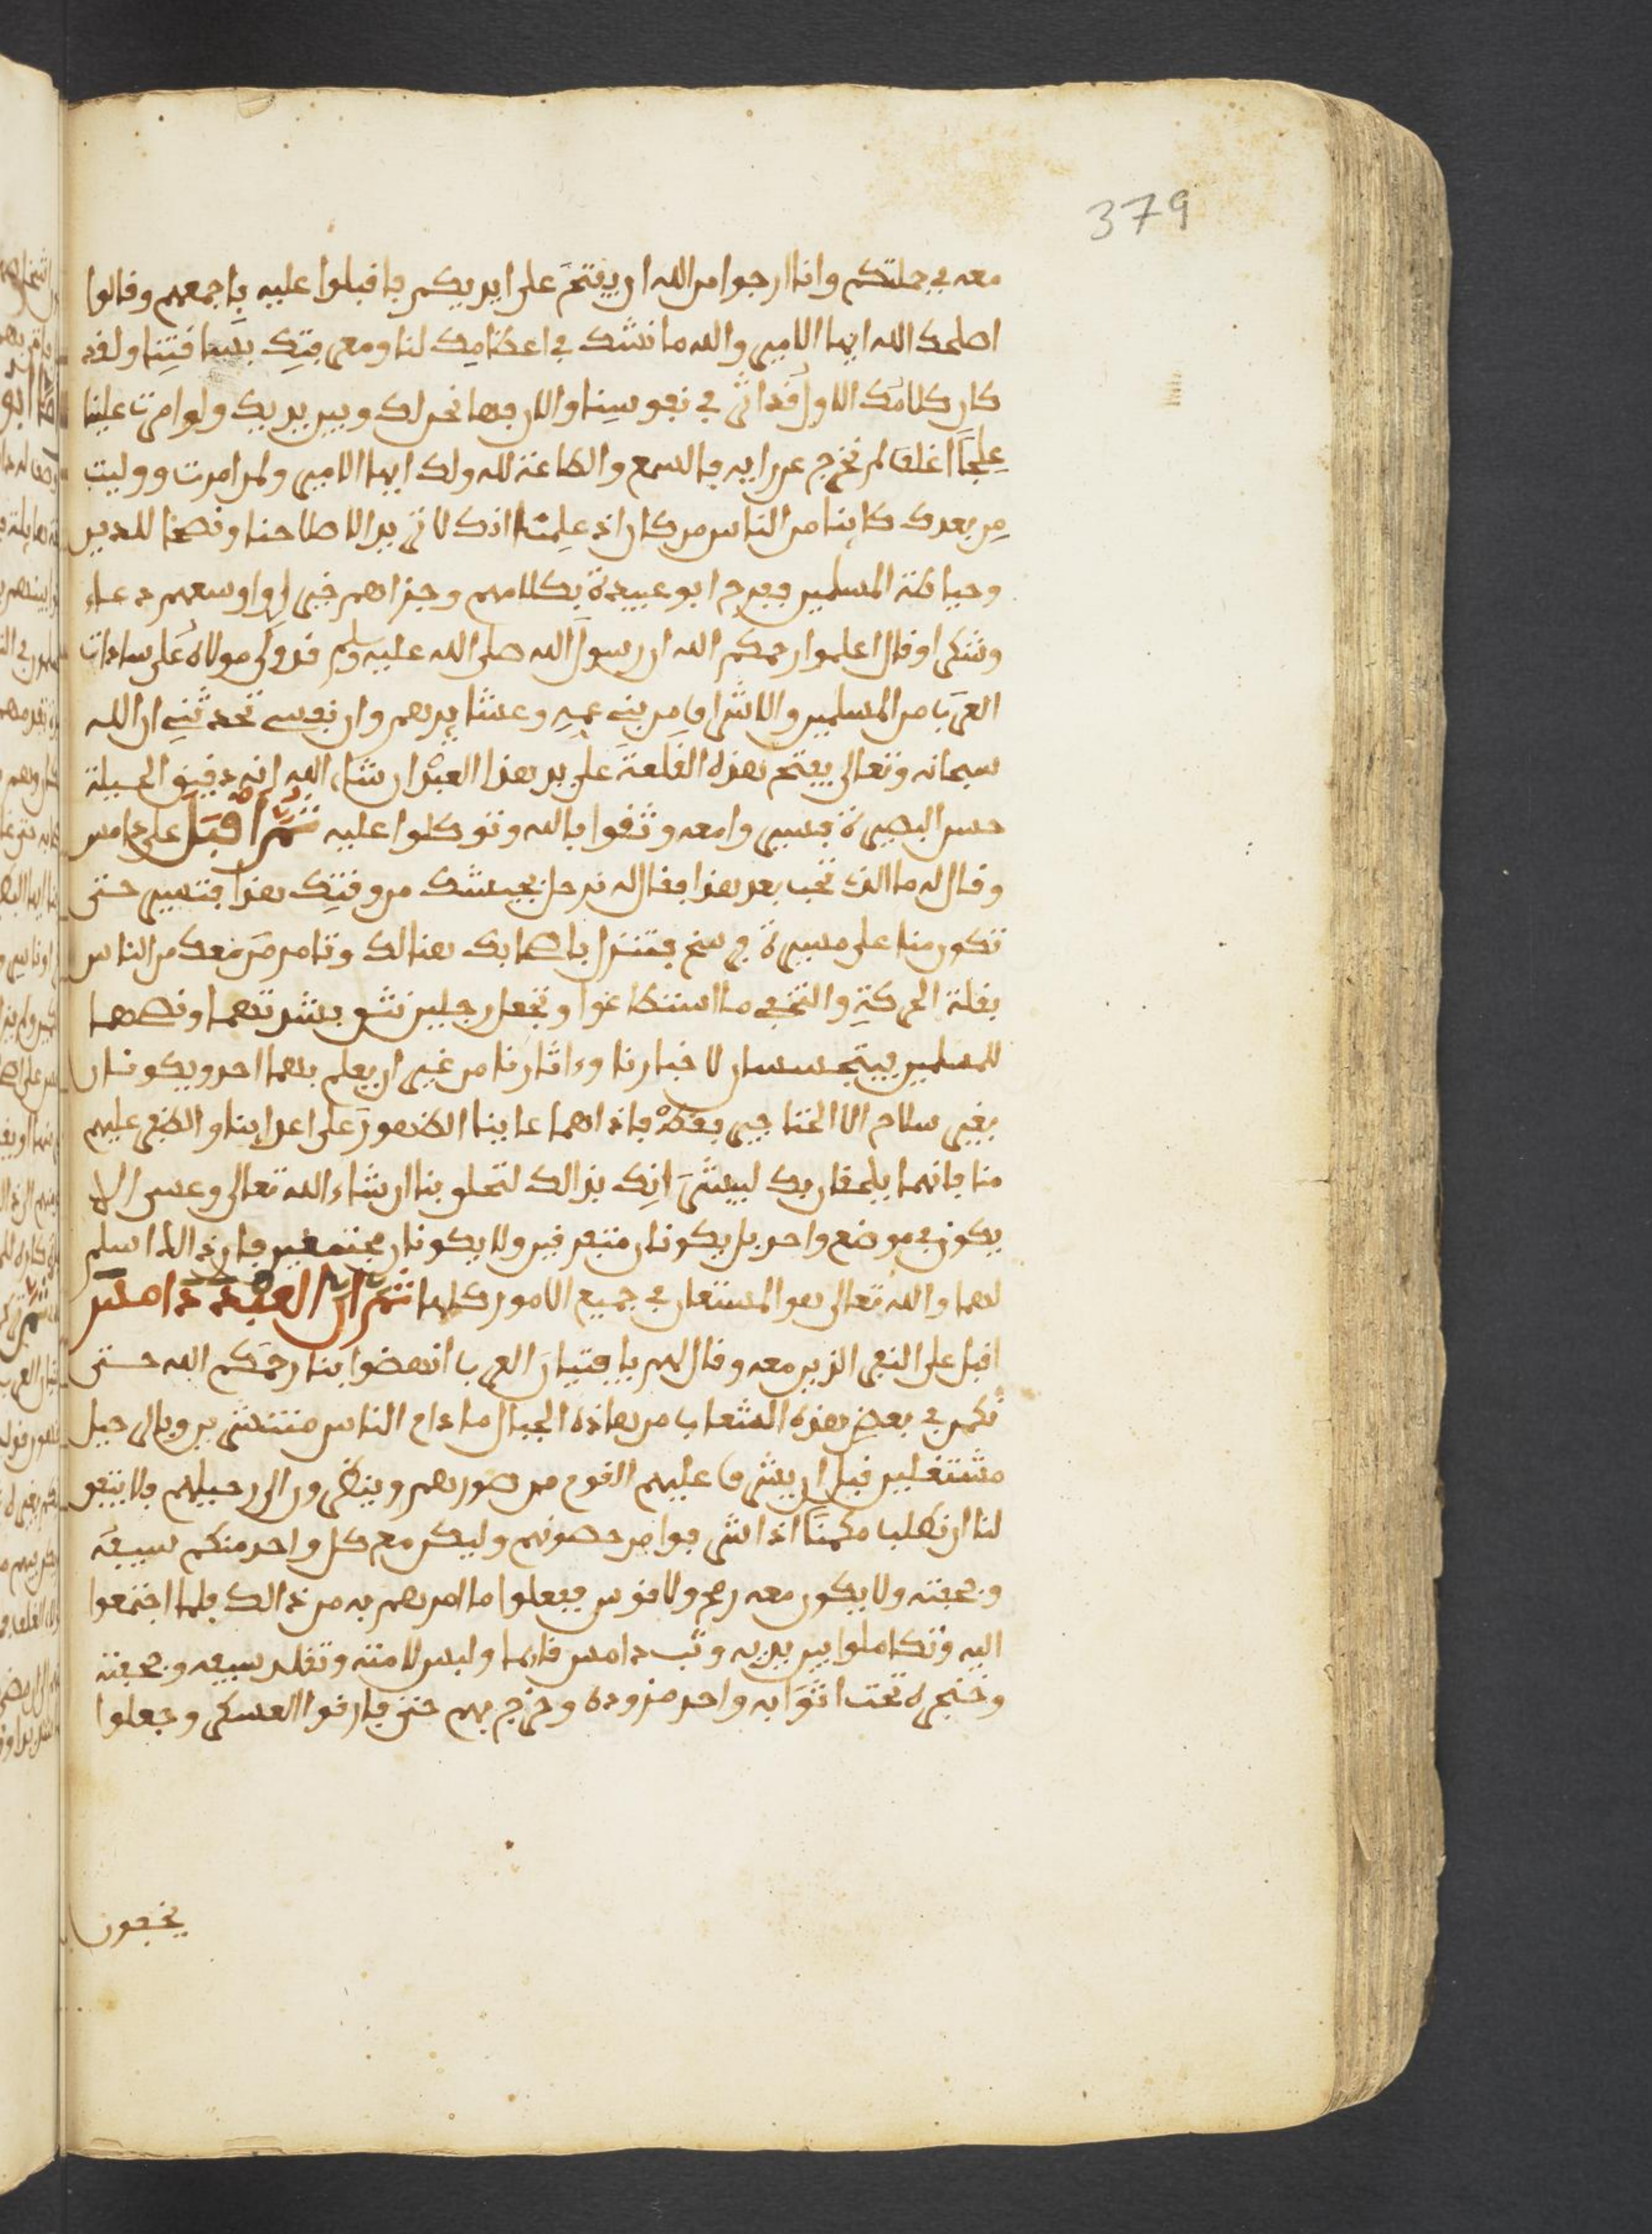 379
معه في جملتكم وانا ارجوا من الله ان يفتح على ايديكم فاقبلوا عليه باجمعهم وقالوا
اصلحك الله ايها الامير والله ما نشك في اعظامك لنا ومعرفتك بسافتنا ولقد
كان كلامك الاول قد اثر في نفوسنا والان فها نحن لك وبين يديك ولو امرت علينا
علجا اغلف لم نخرج عن رايه فالسمع والطاعة لله ولك ايها الامير ولمن امرت ووليت
من بعدك كاينا من الناس من كان اذ علمنا انك لا تريد الا صلاحنا ونصحا للدين
وحياطة المسلمين ففرح ابو عبيدة بكلامهم وجزاهم خيرا واوسعهم دعاء
وشكرا وقال اعلموا رحمكم الله ان رسول الله صلى الله عليه وسلم قد ولى مولاه على سادات
العرب من المسلمين والاشراف من بني عمه وعشايرهم وان نفسي تحدثني ان الله
سبحانه وتعالى يفتح هذه القلعة على يد هذا العبد ان شاء الله انه دقيق الحيلة
حسن البصيرة فسيروا معه وثقوا بالله وتوكلوا عليه ثم اقبل على دامس
وقال له ما الذي تحب بعد هذا فقال له ترحل بجيشك من وقتك هذا فتسير حتى
تكون منا على مسيرة فرسخ فتنزل باصحابك هنالك وتامر من معك من الناس
بقلة الحركة والتخفي ما استطاعوا وتجعل رجلين تثق بشدتهما ونصحهما
للمسلمين يتجسسان لاخبارنا وءاثارنا من غير ان يعلم بهما احد ويكونان
بغير سلاح الا الخناجير فقط فاذا هما عاينا الظهور على اعداينا والظفر عليهم
منا فانهما يلحقان بك ليبشرانك بذالك لتحلو بنا ان شاء الله تعالى وعسى الا
يكون في موضع واحد بل يكونان متفرقين ولا يكونان مجتمعين فان ذالك اسلم
لهما والله تعالى هو المستعان في جميع الامور كلها ثم ان العبد دامس
اقبل على النفر الذين معه وقال لهم يا فتيان العرب انهضوا بنا رحمكم الله حتى
نكمن في بعض هذه الشعاب من هاذه الجبال ما دام الناس منتشرين وبالرحيل
مشتغلين قبل ان يشرف عليهم القوم من سورهم وينظرون الى رحيلهم فلا يتفق
لنا ان نطلب مكمنا اذا اشرفوا من حصونهم وليكن مع كل واحد منكم سيفه
وجحفته ولا يكون معه رمح ولا قوس ففعلوا ما امرهم به من ذالك فلما اجتمعوا
اليه وتكاملوا بين يديه وثب دامس قايما ولبس لامته وتقلد سيفه وجحفته
وخنجره تحت اثوابه واخذ مزوده وخرج بهم حتى فارقوا العسكر وجعلوا
يخفون